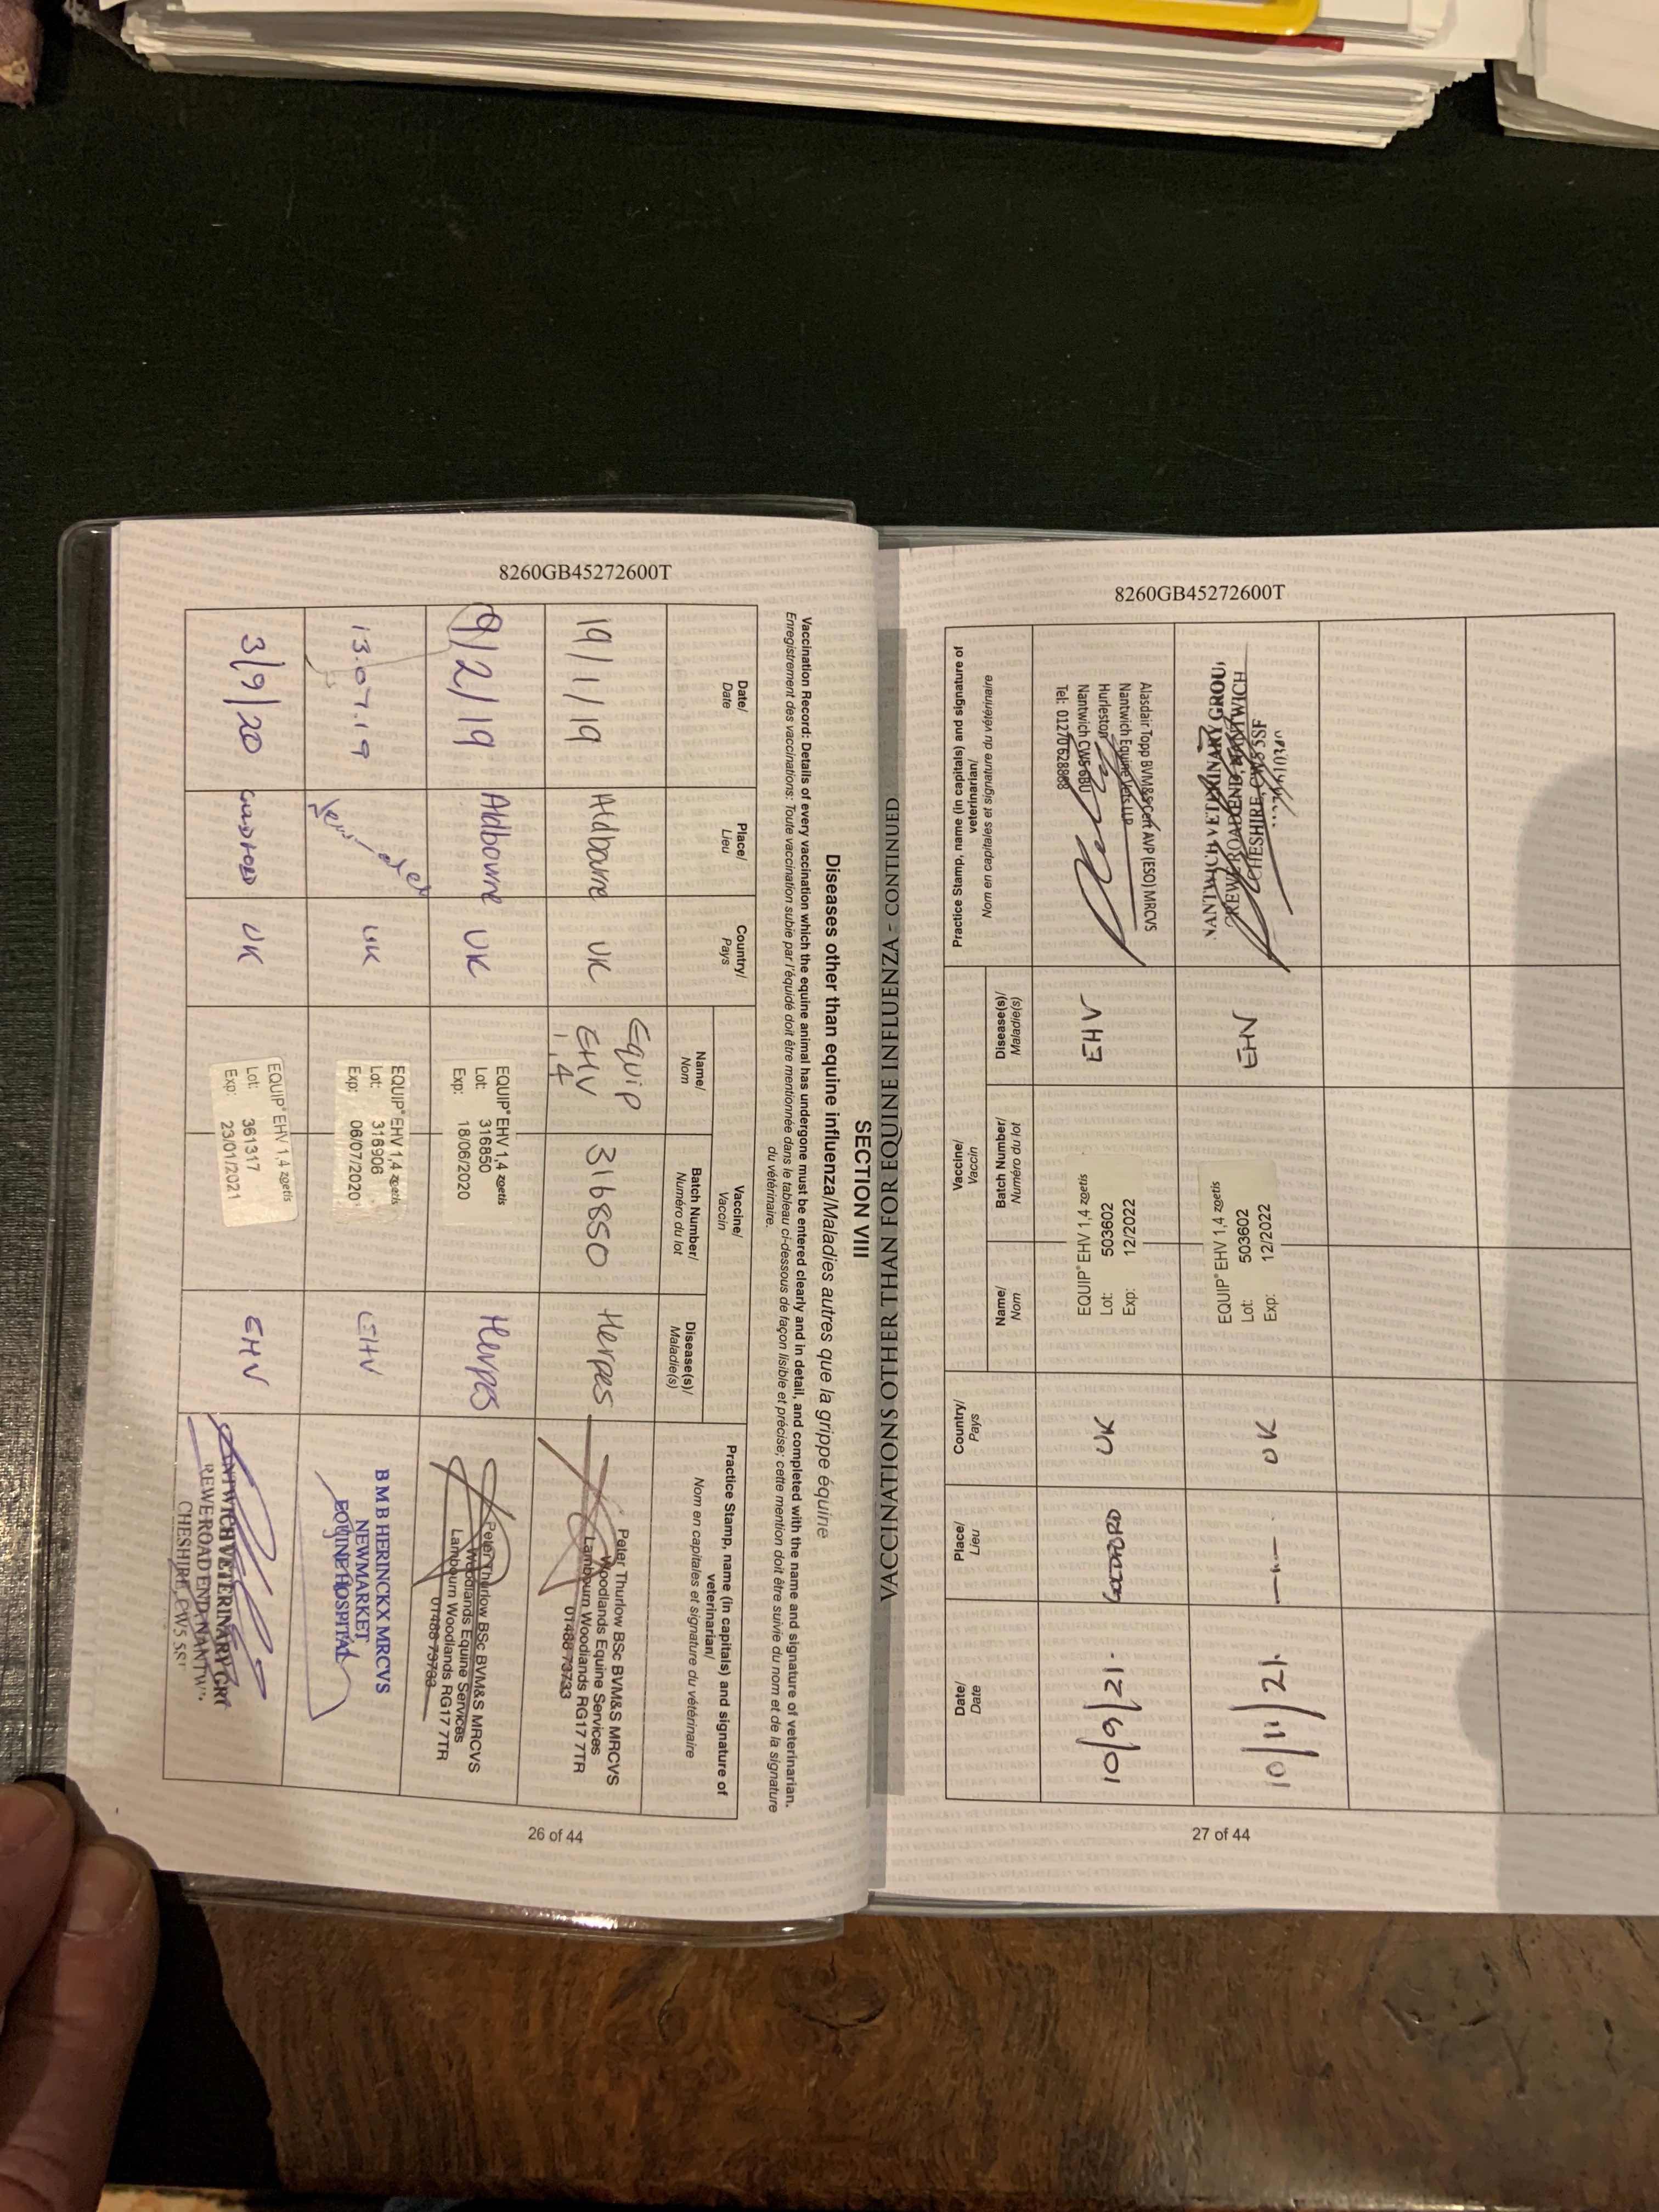 8260GB45272600T
SECTION VIII
Diseases other than equine influenza/Maladies autres que la grippe équine
Vaccination Record: Details of every vaccination which the equine animal has undergone must be entered clearly and in detail, and completed with the name and signature of veterinarian.
Enregistrement des vaccinations: Toute vaccination subie par l'équidé doit être mentionnée dans le tableau ci-dessous de façon lisible et précise; cette mention doit être suivie du nom et de la signature
du vétérinaire.
Date/
Date
Place/
Lieu
Country/
Pays
Vaccine/
Vaccin
Name/
Nom
Batch Number/
Numéro du lot
Disease(s)/
Maladie(s)
Practice Stamp, name (in capitals) and signature of
veterinarian/
Nom en capitales et signature du vétérinaire
19/1/19
Aldbourne
UK
Equip
EHV
1,4
316850
Herpes
Peter Thurlow BSc BVM&S MRCVS
Woodlands Equine Services
Lambourn Woodlands RG17 7TR
01488 73733
9/2/19
Aldbourne
UK
EQUIP® EHV 1,4 zoetis
Lot: 316850
Exp: 18/06/2020
Herpes
Peter Thurlow BSc BVM&S MRCVS
Woodlands Equine Services
Lambourn Woodlands RG17 7TR
01488 73733
13.07.19
UK
EQUIP® EHV 1,4 zoetis
Lot: 316906
Exp: 06/07/2020
EHV
B M B HERINCKX MRCVS
NEWMARKET
EQUINE HOSPITAL
3/9/20
UK
EQUIP® EHV 1,4 zoetis
Lot: 361317
Exp: 23/01/2021
EHV
NTWICH VETERINARY GR
REWE ROAD END, NANTW
CHESHIRE, CW5 5S
26 of 44
8260GB45272600T
VACCINATIONS OTHER THAN FOR EQUINE INFLUENZA - CONTINUED
Date/
Date
Place/
Lieu
Country/
Pays
Vaccine/
Vaccin
Name/
Nom
Batch Number/
Numéro du lot
Disease(s)/
Maladie(s)
Practice Stamp, name (in capitals) and signature of
veterinarian/
Nom en capitales et signature du vétérinaire
10/9/21.
UK
EQUIP® EHV 1,4 zoetis
Lot: 503602
Exp: 12/2022
EHV
Alasdair Topp BVM&S Cert AVP (ESO) MRCVS
Nantwich Equine Vets LLP
Hurleston
Nantwich CW5 6BU
Tel: 01270 628868
10/11/21.
UK
EQUIP® EHV 1,4 zoetis
Lot: 503602
Exp: 12/2022
EHV
NANTWICH VETERINARY GROU
REWE ROAD END, NANTWICH
CHESHIRE, CW5 5SF
27 of 44